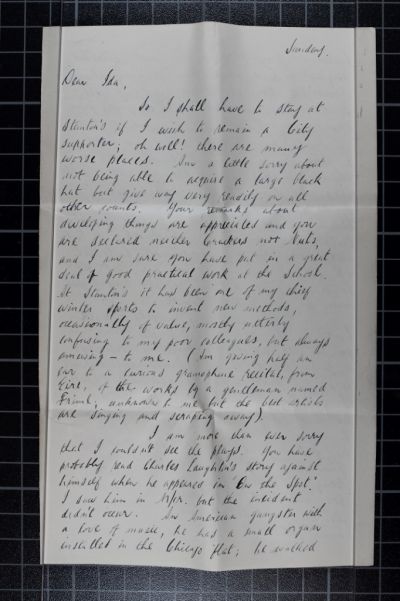 Sunday.
Dear Ida,
So I shall have to stay at
Stanton's if I wish to remain a City
supporter; oh well! there are many
worse places. I'm a little sorry about
not being able to acquire a large black
hat but give way very readily on all
other counts. Your remarks about
developing things are appreciated and you
are declared neither Crackers not Nuts,
and I am sure you have put in a great
deal of good practical work at the School.
At Stanton's it has been one of my chief
winter sports to invent new methods,
occasionally of value, mostly utterly
confusing to my poor colleagues, but always
amusing – to me. (I'm giving half an
ear to a curious gramophone recital, from
Eire, of the works by a gentleman named
Friml; unknown to me but the best artists
are singing and scraping away).
I am more than ever sorry
that I couldn't see the plays. You have
probably read Charles Laughton's story against
himself when he appeared in 'On the Spot.'
I saw him in M/cr. but the incident
didn't occur. An American gangster with
a love of music, he has a small organ
installed in the Chicago flat; he walked